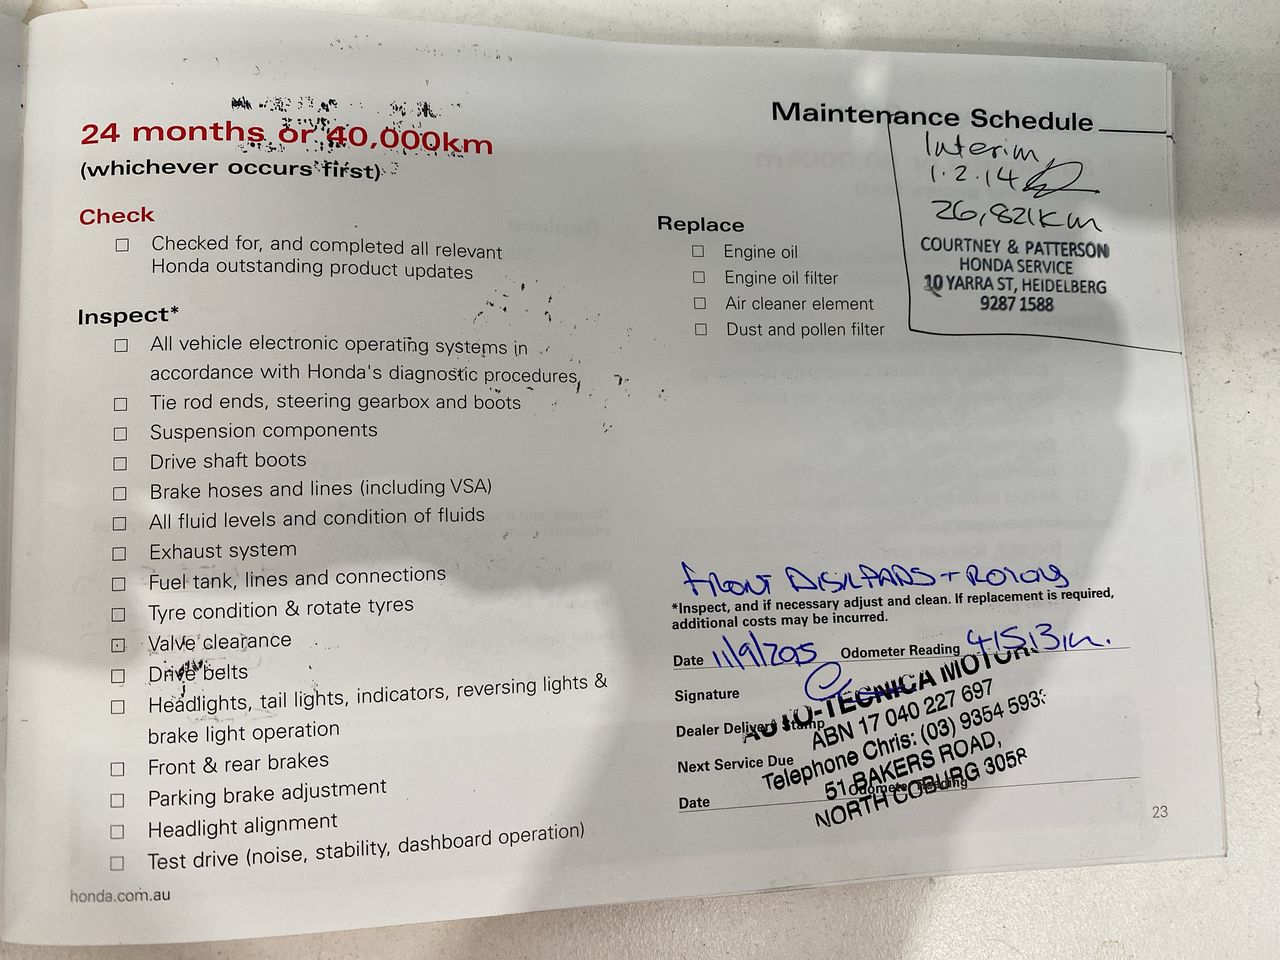 Maintenance Schedule
24 months or 40,000km
(whichever occurs first)
Check
Checked for, and completed all relevant
Honda outstanding product updates
Inspect*
All vehicle electronic operating systems in
accordance with Honda's diagnostic procedures
Tie rod ends, steering gearbox and boots
Suspension components
Drive shaft boots
Brake hoses and lines (including VSA)
All fluid levels and condition of fluids
Exhaust system
Fuel tank, lines and connections
Tyre condition & rotate tyres
Valve clearance
Drive belts
Headlights, tail lights, indicators, reversing lights &
brake light operation
Front & rear brakes
Parking brake adjustment
Headlight alignment
Test drive (noise, stability, dashboard operation)
honda.com.au
Replace
Engine oil
Engine oil filter
Air cleaner element
Dust and pollen filter
Interim
1.2.14
26,821km
COURTNEY & PATTERSON
HONDA SERVICE
10 YARRA ST, HEIDELBERG
9287 1588
FRONT DISK PADS + ROTORS
*Inspect, and if necessary adjust and clean. If replacement is required,
additional costs may be incurred.
Date Odometer Reading
Signature
Dealer Delivery Stamp
Next Service Due
Date Odometer Reading
AUTO-TECNICA MOTORS
ABN 17 040 227 697
Telephone Chris: (03) 9354 5933
51 BAKERS ROAD,
NORTH COBURG 3058
23